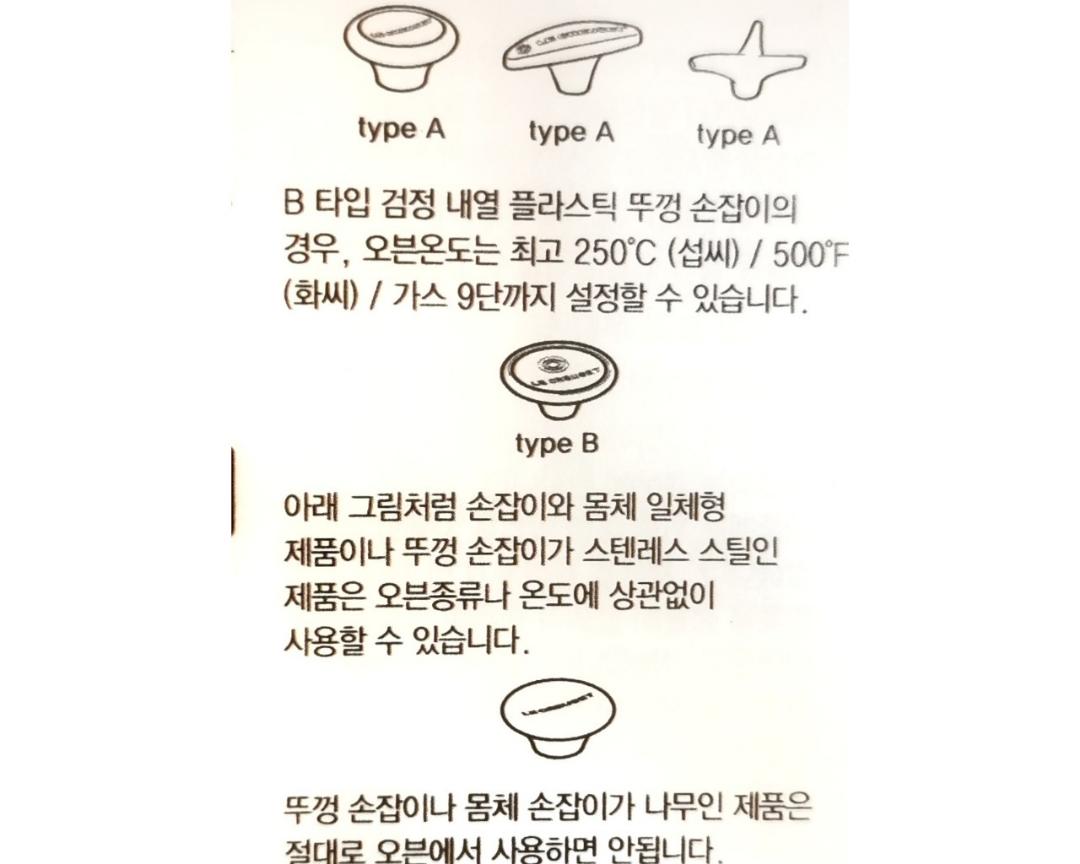 type A type A type A
B 타입 검정 내열 플라스틱 뚜껑 손잡이의
경우, 오븐온도는 최고 250°C (섭씨) / 500°F
(화씨) / 가스 9단까지 설정할 수 있습니다.
LE CREUSET
type B
아래 그림처럼 손잡이와 몸체 일체형
제품이나 뚜껑 손잡이가 스텐레스 스틸인
제품은 오븐종류나 온도에 상관없이
사용할 수 있습니다.
LE CREUSET
뚜껑 손잡이나 몸체 손잡이가 나무인 제품은
절대로 오븐에서 사용하면 안됩니다.